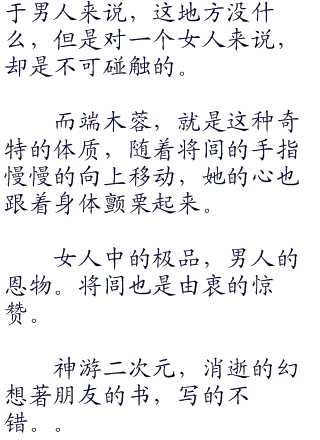 于男人来说，这地方没什
么，但是对一个女人来说，
却是不可碰触的。
而端木蓉，就是这种奇
特的体质，随着将闾的手指
慢慢的向上移动，她的心也
跟着身体颤栗起来。
女人中的极品，男人的
恩物。将闾也是由衷的惊
赞。
神游二次元，消逝的幻
想著朋友的书，写的不
错。。